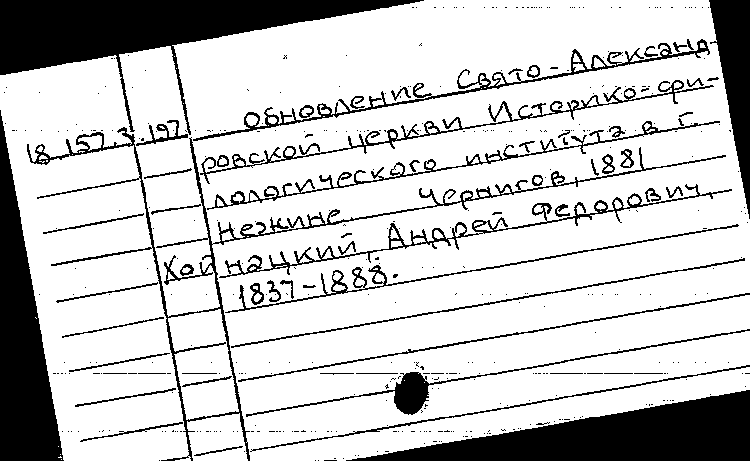 Обновление Свято-Александ-
18.157.3.197 ровской церкви Историко-фи-
лологического института в г.
Нежине. Чернигов, 1881
Хойнацкий, Андрей Федорович,
1837-1888.